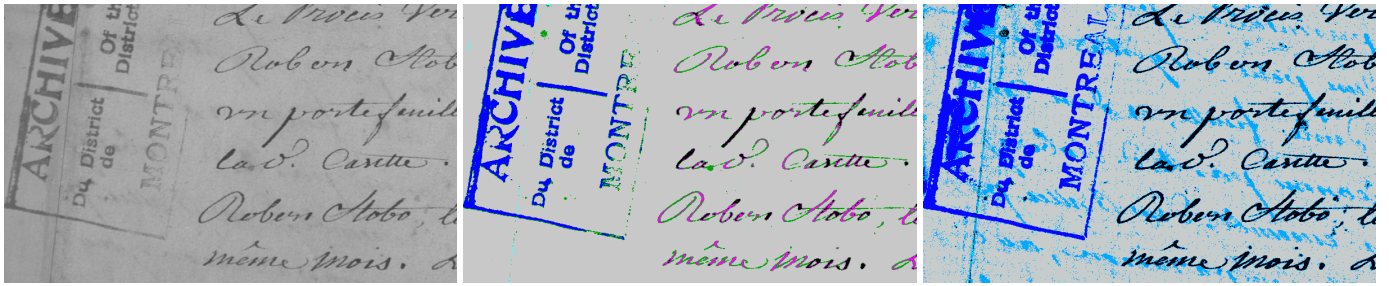 ARCHIVE
Of th
District
Du District
de
MONTRE
Le Procès Ver
Robert Stob
un portefeuill
la d. Cassette.
Robert Stobo, le
même mois.
ARCHIVE
Of th
District
Du District
de
MONTRE
Le Procès Ver
Robert Stob
un portefeuill
la d. Cassette.
Robert Stobo, le
même mois.
ARCHIVE
Of th
District
Du District
de
MONTREAL
Le Procès Ver
Robert Stob
un portefeuill
la d. Cassette.
Robert Stobo, le
même mois.